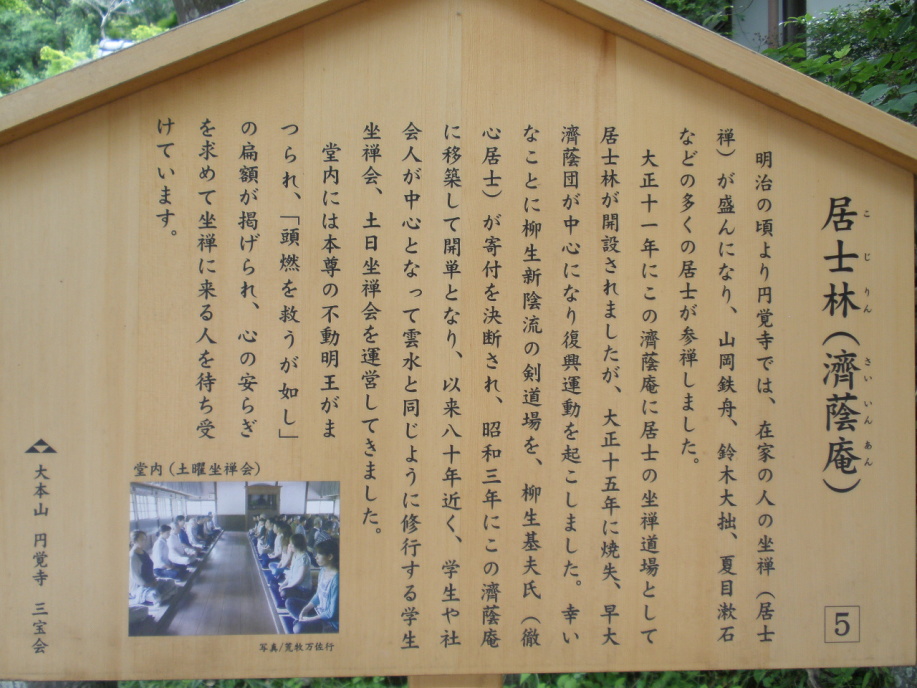 居士林(濟蔭庵)
こ じ りん さい いん あん
5
明治の頃より円覚寺では、在家の人の坐禅(居士
禅)が盛んになり、山岡鉄舟、鈴木大拙、夏目漱石
などの多くの居士が参禅しました。
大正十一年にこの濟蔭庵に居士の坐禅道場として
居士林が開設されましたが、大正十五年に焼失、早大
濟蔭団が中心になり復興運動を起こしました。幸い
なことに柳生新陰流の剣道場を、柳生基夫氏(徹
心居士)が寄付を決断され、昭和三年にこの濟蔭庵
に移築して開単となり、以来八十年近く、学生や社
会人が中心となって雲水と同じように修行する学生
坐禅会、土日坐禅会を運営してきました。
堂内には本尊の不動明王がま
つられ、「頭燃を救うが如し」
の扁額が掲げられ、心の安らぎ
を求めて坐禅に来る人を待ち受
けています。
堂内(土曜坐禅会)
写真/荒牧万佐行
大本山 円覚寺 三宝会